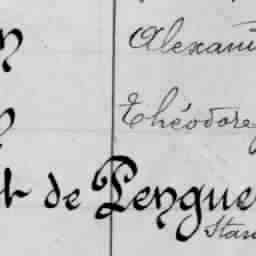 n Alexan
n Théodore
t de Pengue
Stan